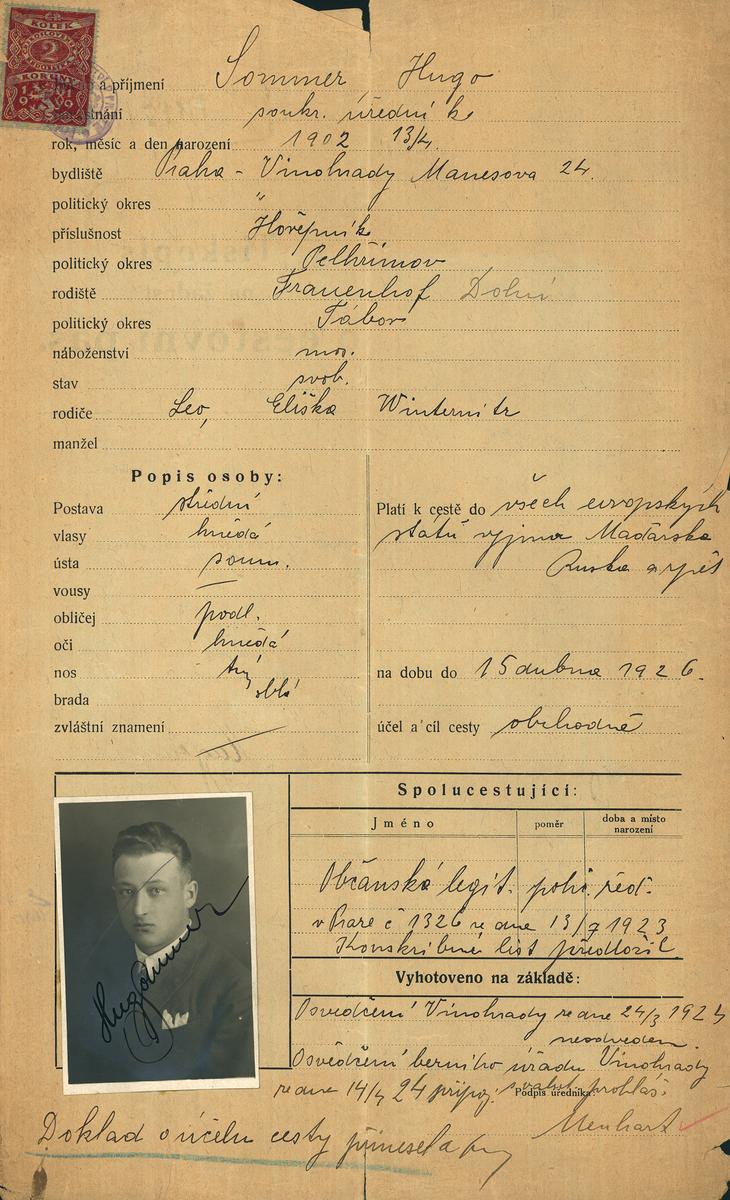 KOLEK
2
KORUNY
a příjmení Sommer Hugo
soukr. úředník
rok, měsíc a den narození 1902 13/4.
bydliště Praha - Vinohrady Manesova 24.
politický okres "
příslušnost Hořepník
politický okres Pelhřimov
rodiště Frauenhof Dolní
politický okres Tábor
náboženství mos.
stav svob.
rodiče Leo, Eliška Winternitz
manžel
Popis osoby:
Postava střední
vlasy hnědá
ústa soum.
vousy —
obličej podl.
oči hnědá
nos
brada oblá
zvláštní znamení —
Platí k cestě do všech evropských
států vyjma Maďarska
Ruska a zpět
na dobu do 15 dubna 1926.
účel a cíl cesty obchodně
Spolucestující:
Jméno poměr doba a místo narození
Občanská legit. polic. řed.
v Praze č 1326 ze dne 13/7 1923
Konskribční list předložil.
Vyhotoveno na základě:
Osvědčení Vinohrady ze dne 24/3 192
neodveden.
Osvědčení berního úřadu Vinohrady
ze dne 14/4 24 připoj. prohláš.
Podpis úředníka:
Menhart
Hugo Sommer
Doklad o účelu cesty přinesela